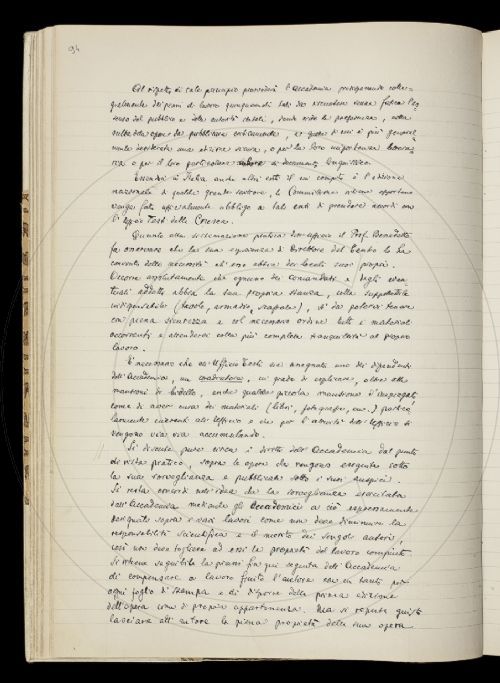 94
Al rispetto di tale principio provvederà l'Accademia predisponendo colle-
gialmente dei piani di lavoro quinquennali tali da riscuotere senza fatica l'as-
senso del pubblico e delle autorità statali, dando nella preferenza, nella
scelta delle opere da pubblicare criticamente, a quelle di cui è più general-
mente desiderata una edizione sicura, o per la loro importanza lettera-
ria o per il loro particolare valore di documento linguistico.
Essendovi in Italia anche altri enti il cui compito è l'edizione
nazionale di qualche grande scrittore, la Commissione ritiene opportuno
venga fatto ufficialmente obbligo a tali enti di prendere accordi con
l'Ufficio Testi della Crusca.
Quanto alla sistemazione pratica dell'ufficio il Prof. Benedetto
fa osservare che la sua esperienza di Direttore del Centro lo ha
convinto della necessità ch'esso abbia dei locali suoi propri.
Occorre assolutamente che ognuno dei comandati e degli even-
tuali addetti abbia la sua propria stanza, colla suppellettile
indispensabile (tavolo, armadio, scaffale), sì da potervi tenere
con piena sicurezza e col necessario ordine tutti i materiali
occorrenti e attendere colla più completa tranquillità al proprio
lavoro.
È necessario che all'Ufficio Testi sia assegnato uno dei dipendenti
dell'Accademia, un in grado di esplicare, oltre alle
mansioni di bidello, anche qualche piccola mansione d'impiegato,
come di aver cura dei materiali (libri, fotografie, ecc.) partico-
larmente inerenti all'ufficio e che per l'attività dell'ufficio si
vengono via via accumulando.
Si discute pure circa i diritti dell'Accademia dal punto
di vista pratico, sopra le opere che vengono eseguite sotto
la sua sorveglianza e pubblicate sotto i suoi auspici.
Si resta concordi nell'idea che la sorveglianza esercitata
dall'Accademia mediante gli Accademici a ciò espressamente
delegati sopra i vari lavori come non deve diminuire la
responsabilità scientifica e il merito dei singoli autori,
così non deve togliere ad essi la proprietà del lavoro compiuto.
Si ritiene seguibile la prassi fin qui seguita dall'Accademia
di compensare a lavoro finito l'autore con un tanto per
ogni foglio di stampa e di disporre della prima edizione
dell'opera come di propria appartenenza. Ma si reputa giusto
lasciare all'autore la piena proprietà della sua opera